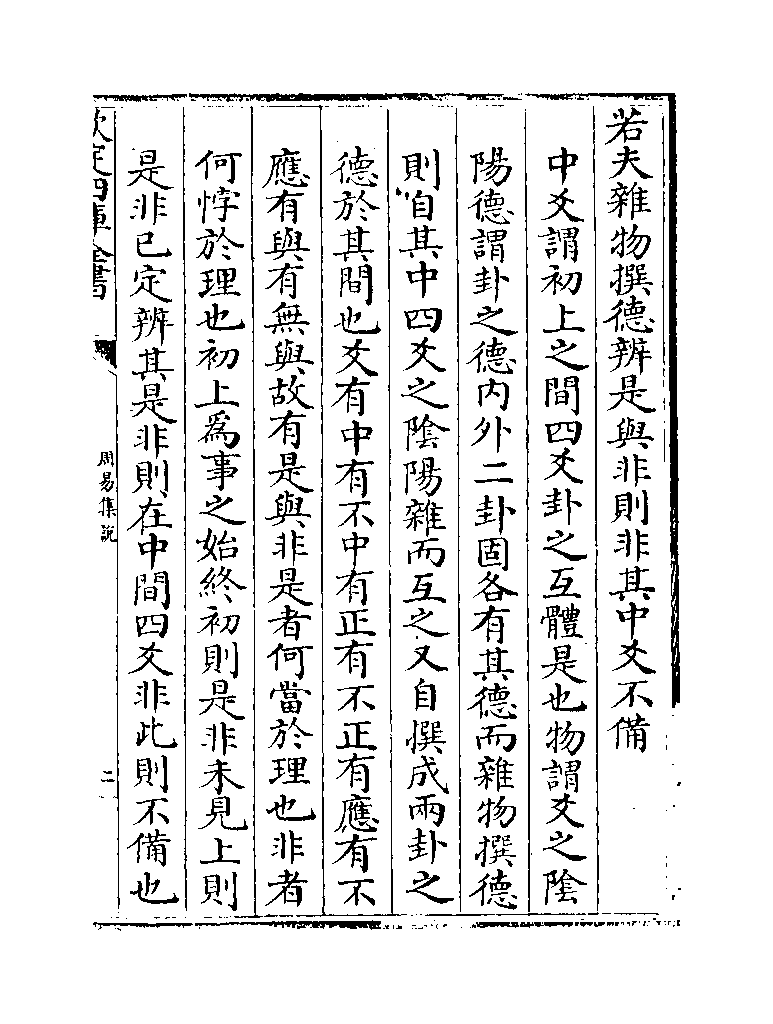 若夫雜物撰德辨是與非則非其中爻不備
中爻謂初上之間四爻卦之互體是也物謂爻之陰
陽德謂卦之德内外二卦固各有其德而雜物撰德
則自其中四爻之陰陽雜而互之又自撰成兩卦之
德於其間也爻有中有不中有正有不正有應有不
應有與有無與故有是與非是者何當於理也非者
何悖於理也初上爲事之始終初則是非未見上則
是非已定辨其是非則在中間四爻非此則不備也
欽定四庫全書
周易集說
二